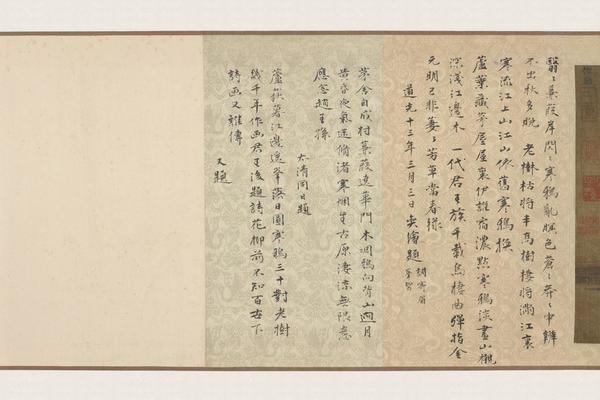 翳翳蒹葭岸閃閃寒鴉亂暝色蒼蒼莽莽中辨
不出秋多晚 老樹枯將半烏樹棲將滿江裏
寒流江上山江山依舊寒鴉換
蘆葉藏茅屋屋裏伊誰宿濃點寒鴉淡畫山襯
深淺江邊木 一代君王族千載烏棲曲彈指金
元明已非萋萋芳草當春綠
道光十三年三月三日奕繪題
茅舍自成村蒹葭遶華門木凋鴉向背山迴月
黃昏夜氣迷脩渚寒烟生古原淒涼無限意
應念趙王孫
太清同日題
蘆荻著江邊遠峯落日圓寒鴉三十對老樹
幾千年作画君王後題詩花柳前不知百世下
詩画又誰傳
又題